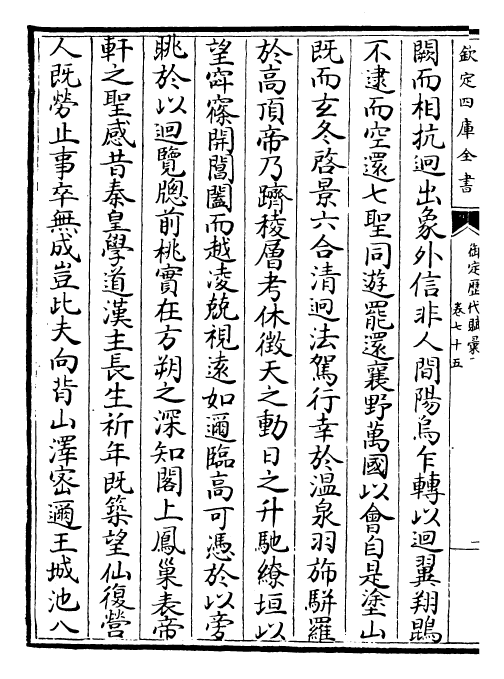 欽定四庫全書
御定歷代賦彙
卷七十五
闕而相抗迥出象外信非人間陽烏乍轉以迴翼翔鵾
不逮而空還七聖同遊罷還襄野萬國以會自是塗山
既而玄冬啓景六合清迥法駕行幸於溫泉羽斾駢羅
於高頂帝乃躋稜層考休徵天之動日之升馳繚垣以
望寀寮開閶闔而越凌兢視遠如邇臨高可憑於以旁
眺於以迴覽牕前桃實在方朔之深知閣上鳳巢表帝
軒之聖感昔秦皇學道漢主長生祈年既築望仙復營
人既勞止事卒無成豈比夫向背山澤密邇王城池八